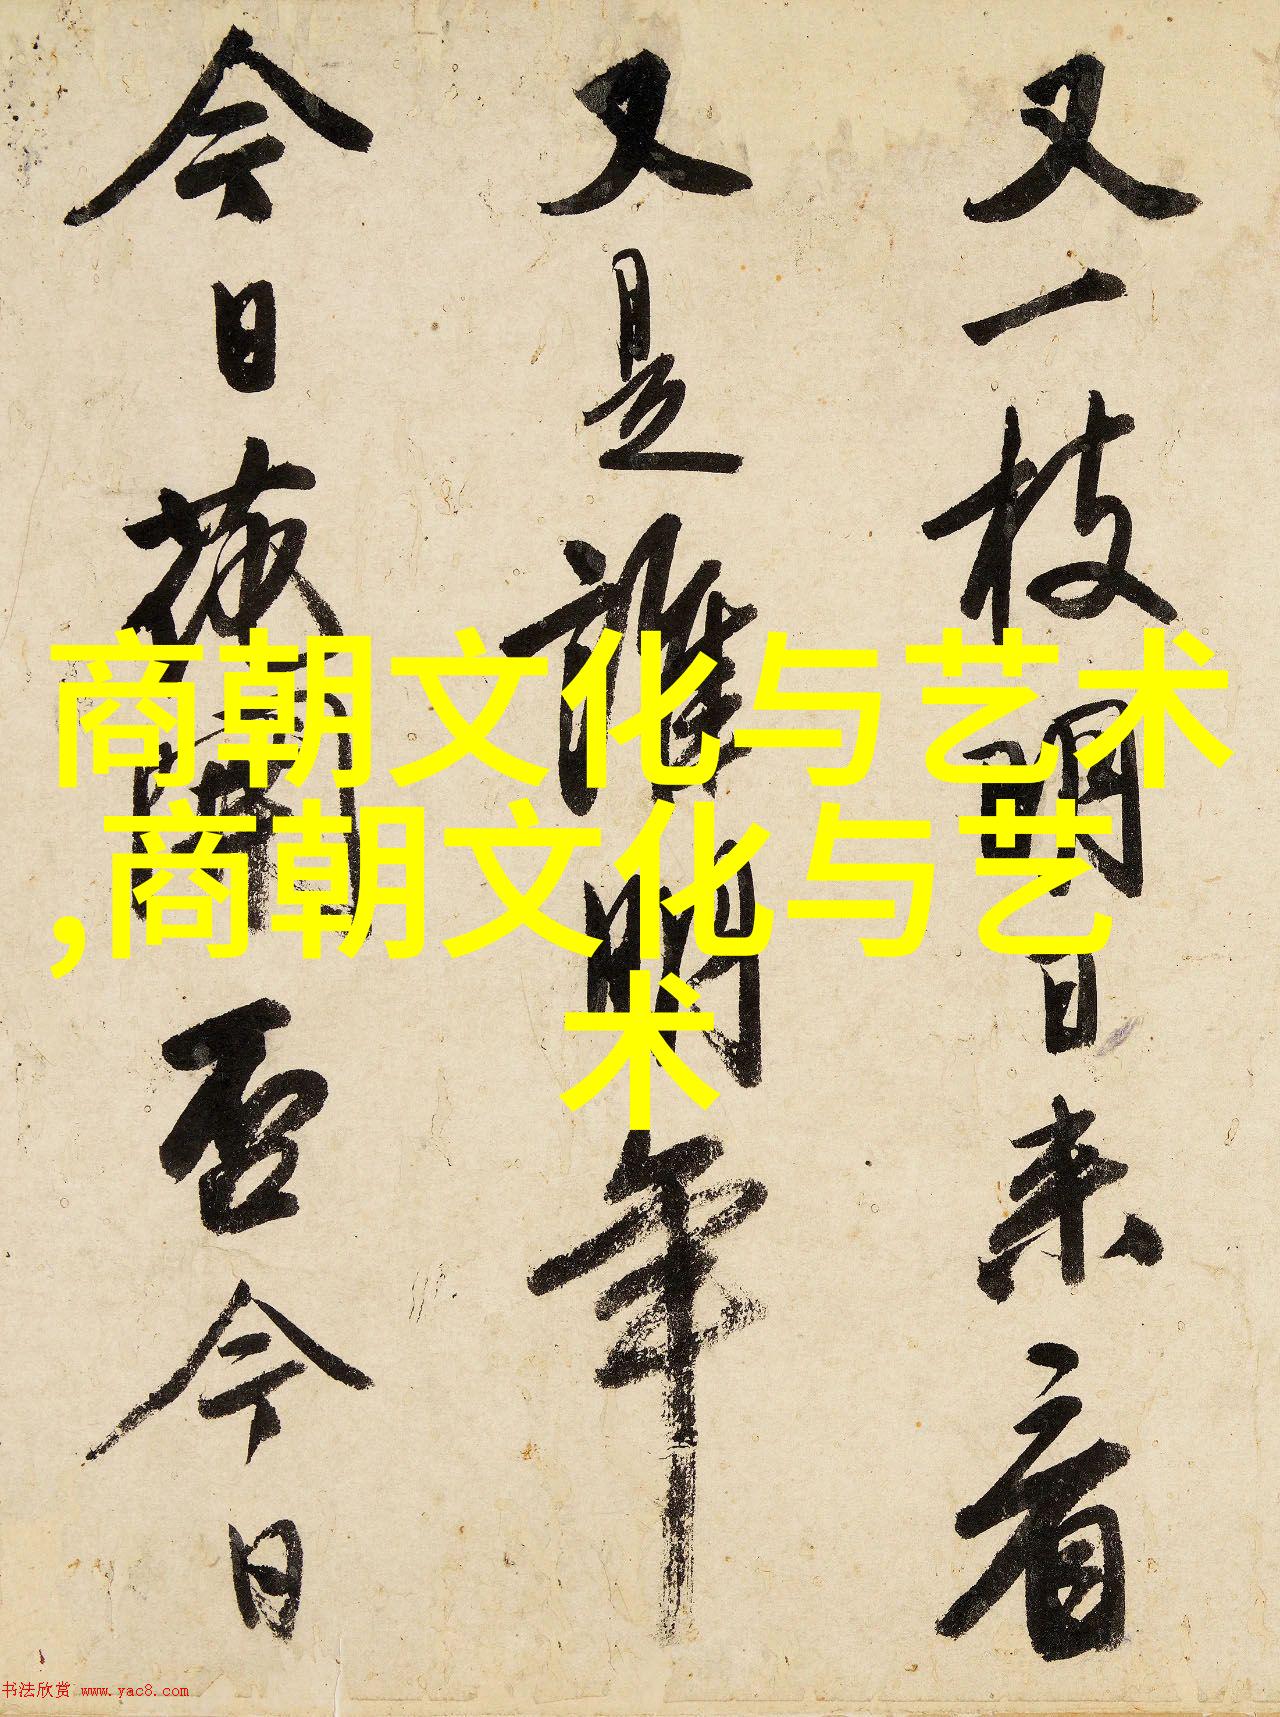 又一枝明日来看
又是誰明年
今日花開否今日
商朝文化与艺术
,商朝文化与艺
术
书法欣赏 www.yac8.com